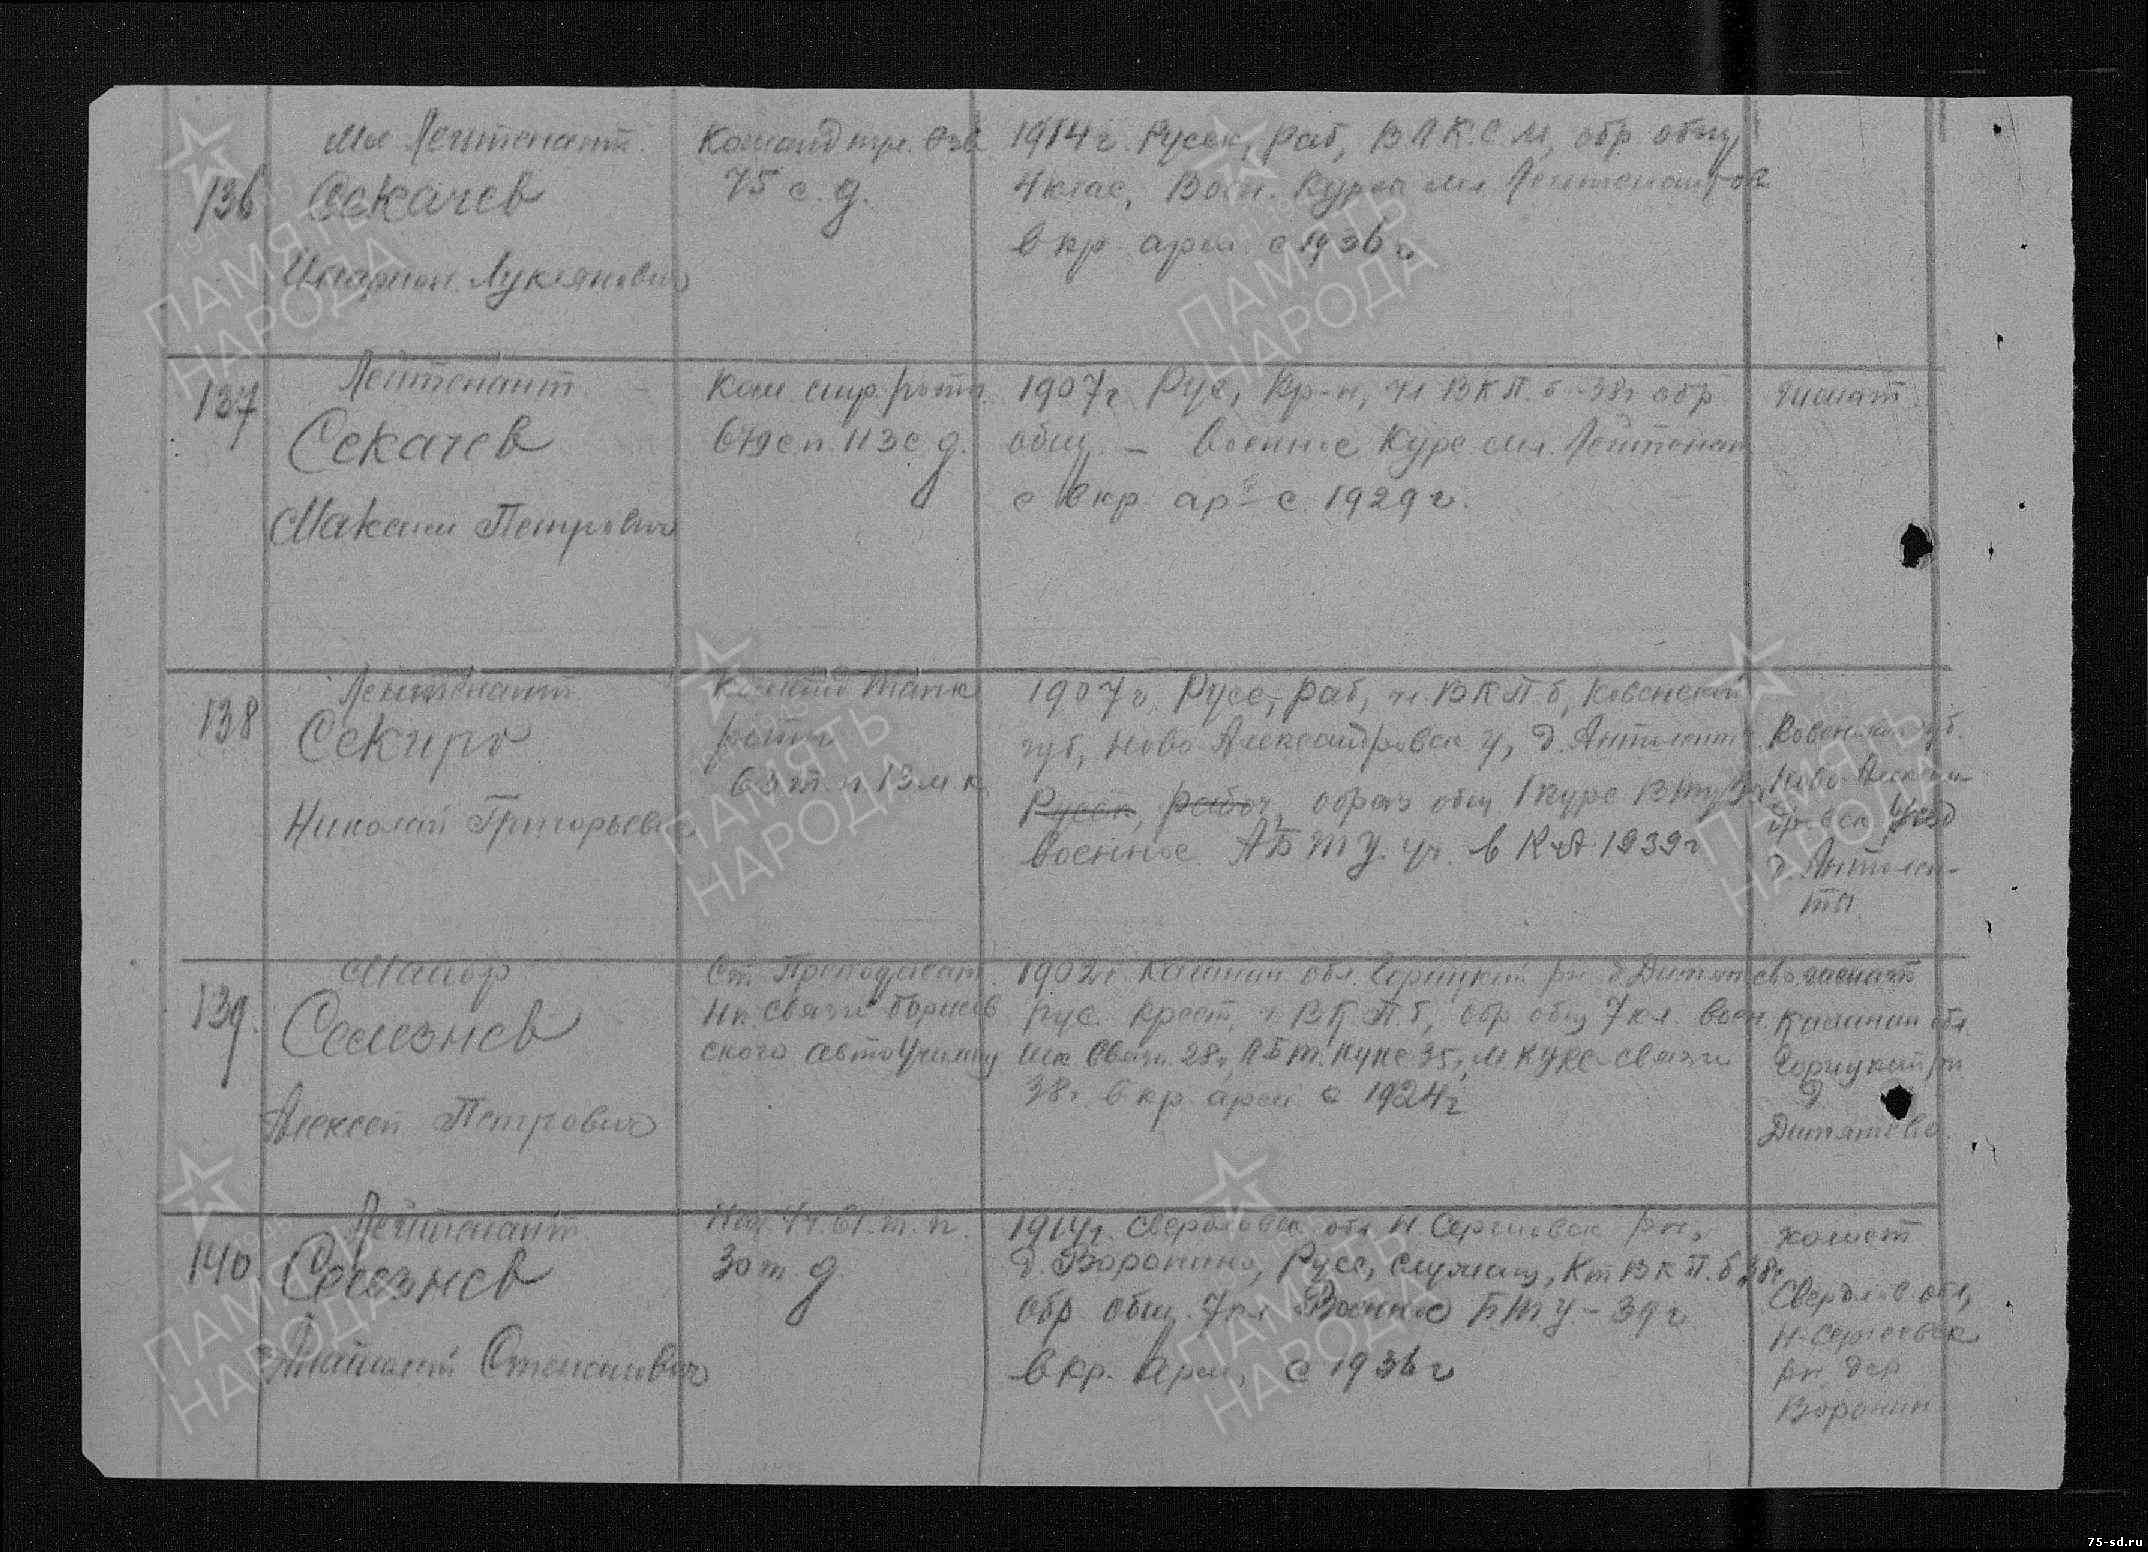 136
Мл Лейтенант
Секачев
Иларион Лукьянович
75 с. д.
1914 г. Русск, раб, ВЛКСМ, обр общ
4 клас, Воен. Курсы мл Лейтенантов
в кр арми с 1936 г
137
Лейтенант
Секачев
Максим Петрович
Ком стр. роты
679 сп. 113 с д.
1907 г. Рус, Кр-н, чл ВКП. б -38 г обр
общ. – военное Курс мл. Лейтенан
в кр ар – с 1929 г.
женат
138
Лейтенант
Секиро
Николай Григорьевич
Команд Танк
роты
13 м к.
1907 г, Русс, раб, чл. ВКП б, Ковенской
губ, Ново Александровск у, д.
Русск, рабоч, образ общ 1 курс
военное АБТУ. уч. в КА 1939 г
Ковенской губ.
Уезд
139.
Майор
Селезнев
Алексей Петрович
Ст Преподават
связи Борисов
ского автоучилищ
1902 г. Калинин обл. Горицкий рн д Дитятево
рус. крест, ч ВКП. б, обр общ 7 кл. воен
шк Связи. 28 г, курс связи
38 г. в кр. арми с 1924 г
женат
Калинин обл.
Горицкий рн
д
Дитятево
140
Лейтенант
Селезнев
Степанович
61. т. п.
30 т. д.
1914 г. Свердловск обл Н. Сергиевск рн,
д. Воронино, Русс, служащ, Кт ВКП. б 38 г
обр общ. 7 кл Военное БТУ – 39 г
в кр. арми, с 1936 г
холост
Свердлов обл,
Н-Сергиевск
рн дер
Воронин
ПАМЯТЬ
НАРОДА
75-sd.ru